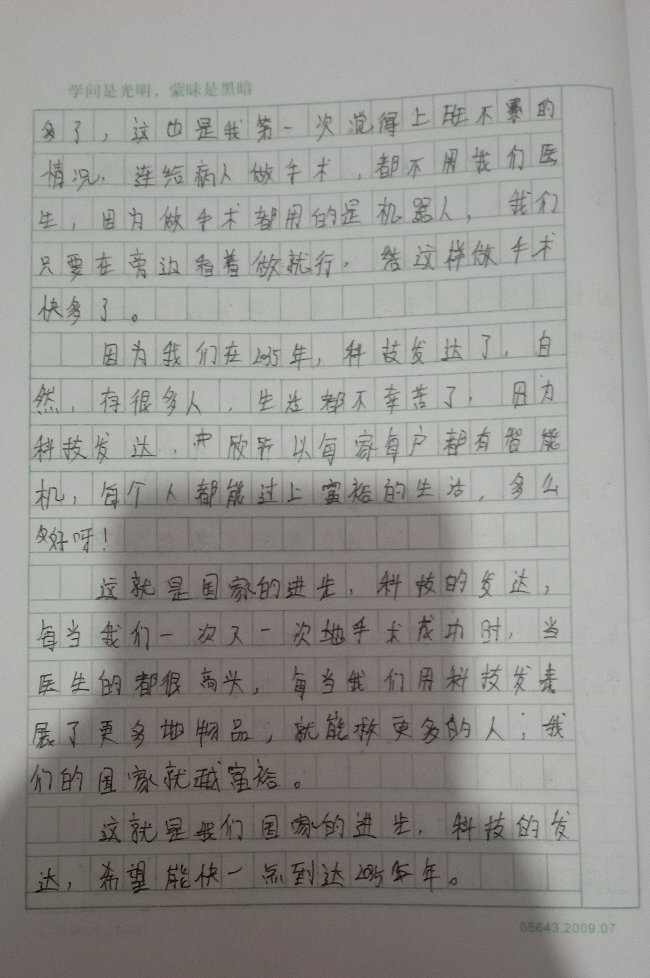 学问是光明、蒙昧是黑暗
多了，这也是我第一次觉得上班不累的
情况，连给病人做手术，都不用我们医
生，因为做手术都用的是机器人，我们
只要在旁边看着做就行，给这样做手术
快多了。
因为我们在2035年，科技发达了，自
然，存很多人，生活都不幸苦了，因为
科技发达，所以每家每户都有智能
机，每个人都能过上富裕的生活，多么
好呀！
这就是国家的进步，科技的发达，
每当我们一次又一次地手术成功时，当
医生的都很高兴，每当我们用科技发
展了更多地物品，就能救更多的人；我
们的国家就越富裕。
这就是我们国家的进步，科技的发
达，希望能快一点到达2035年。
05643.2009.07